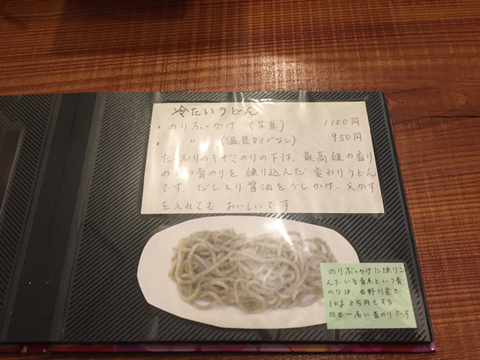 冷たいうどん
・のりぶっかけ (写真) 1100円
・ 〃 (温泉タマゴなし) 950円
たっぷりのキザミのりの下は、最高級の香り
の 青のりを練り込んだ変わりうどん
です。だし入り醤油を少しかけ、天かす
を入れても おいしいです
のりぶっかけに練りこ
んでいる青 という青
のりは、吉野川産で
1kg 8万円もする
日本一高い青のりです